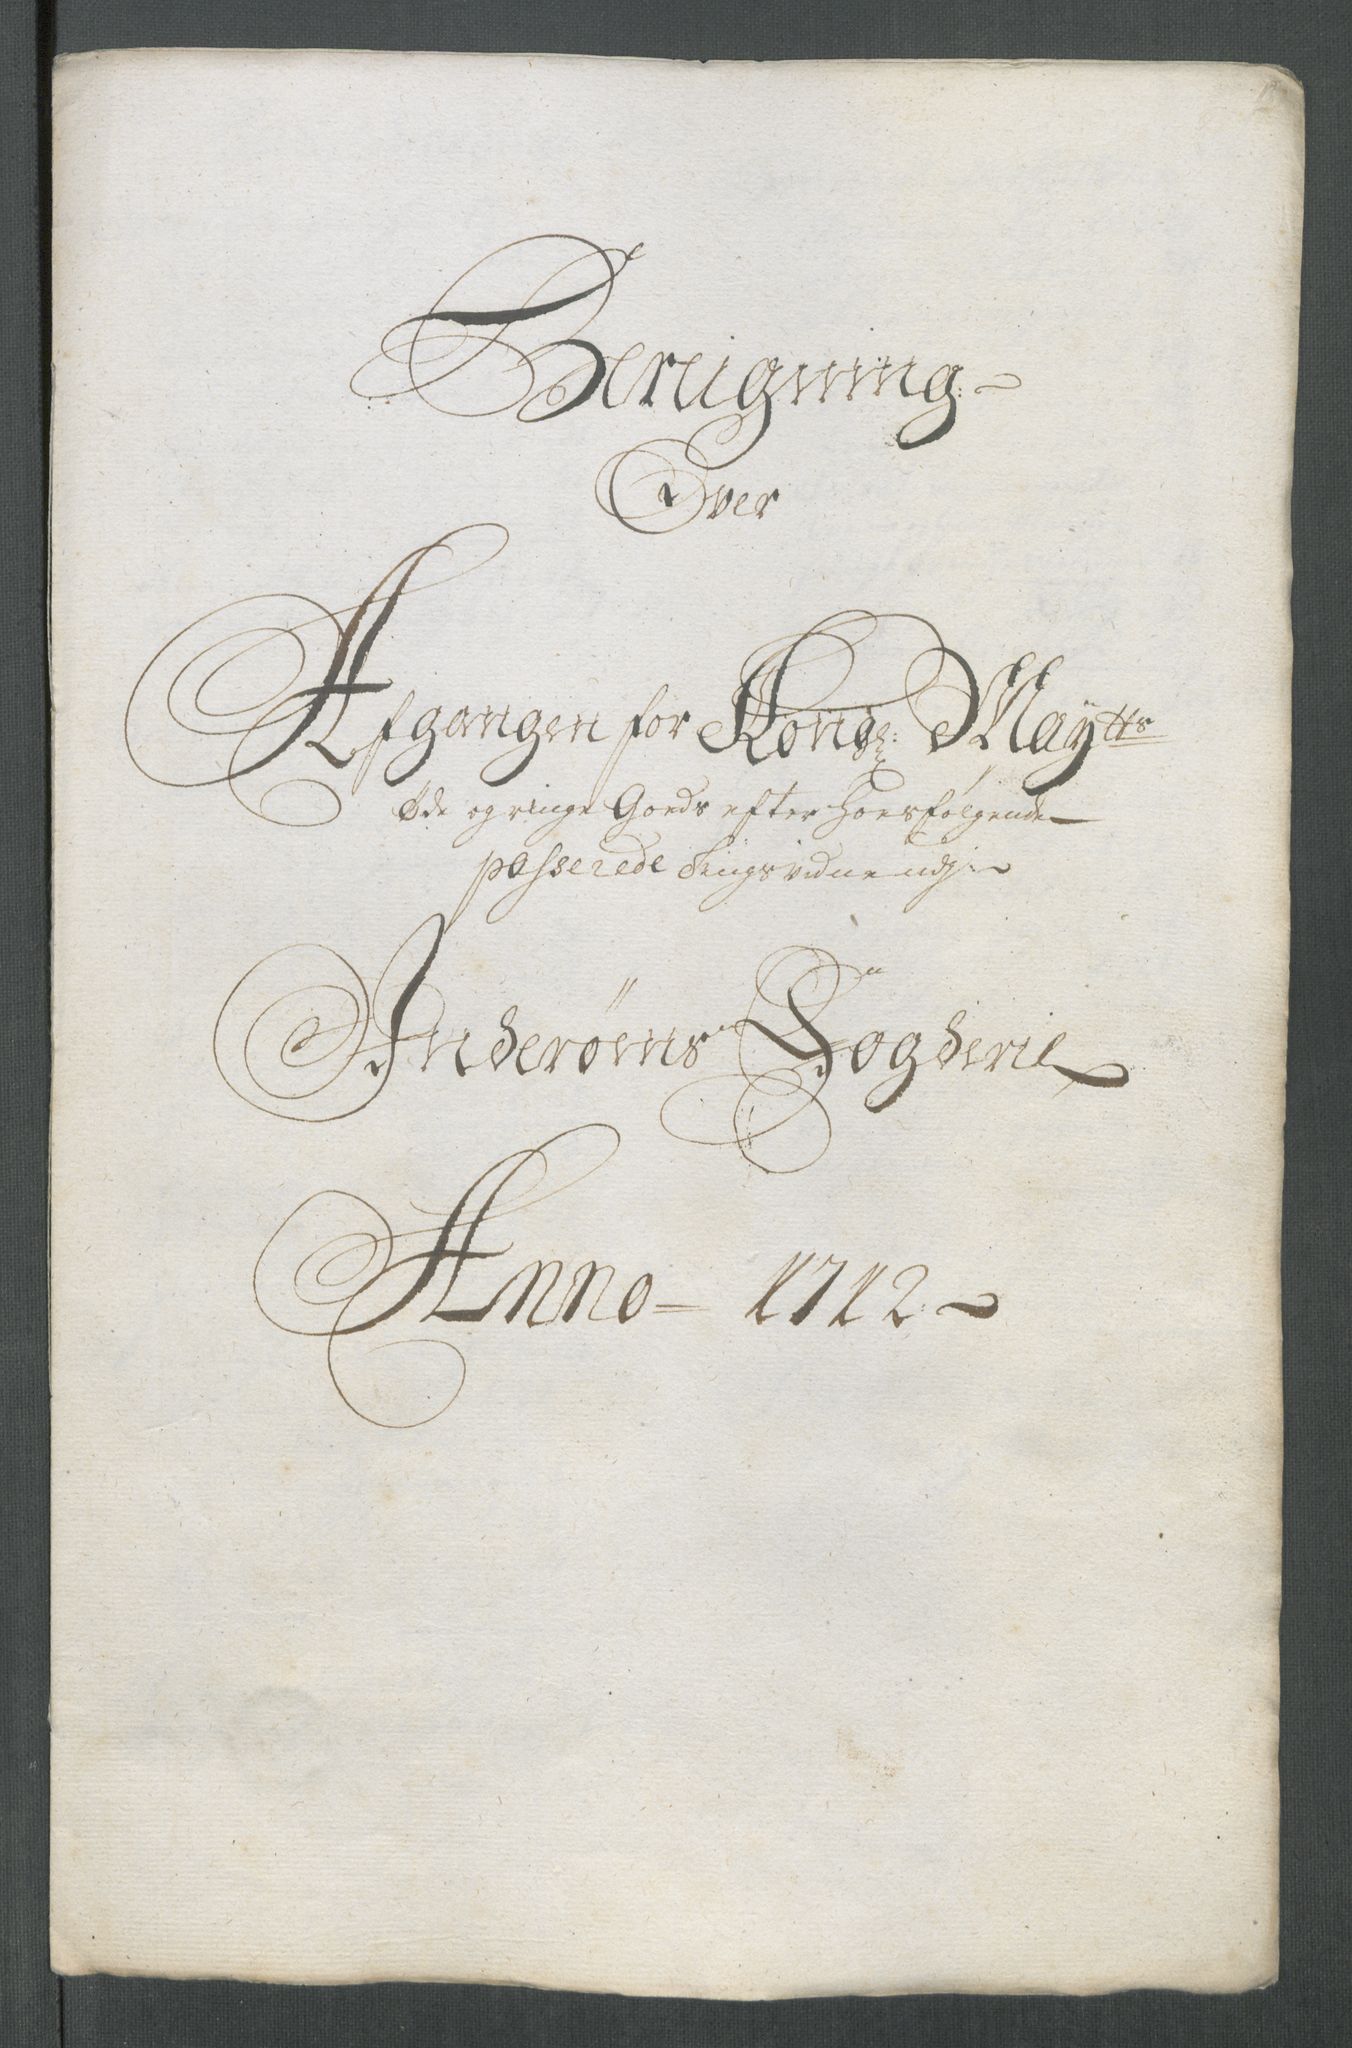 Bereigning
Over
Afgangen for Kongl: Maytts
Øde og ringe Goeds efter hoesfølgende
passerede Tingsvidne udj
Inderøens Fogderie
Anno 1712